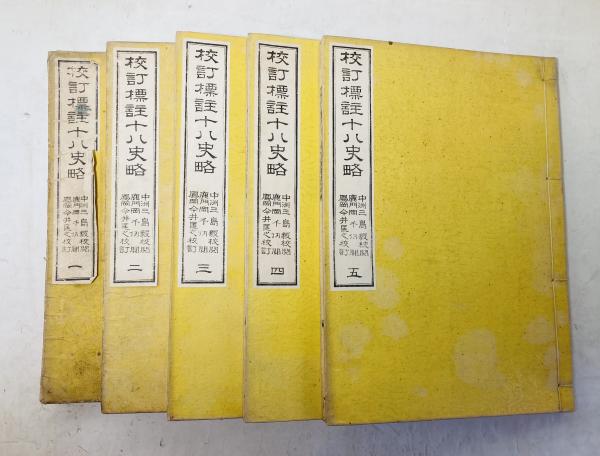 校訂標註十八史略
中洲三島毅校閲
鹿門岡千仞閲
鳳岡今井匡之校訂
一
校訂標註十八史略
中洲三島毅校閲
鹿門岡千仞閲
鳳岡今井匡之校訂
二
校訂標註十八史略
中洲三島毅校閲
鹿門岡千仞閲
鳳岡今井匡之校訂
三
校訂標註十八史略
中洲三島毅校閲
鹿門岡千仞閲
鳳岡今井匡之校訂
四
校訂標註十八史略
中洲三島毅校閲
鹿門岡千仞閲
鳳岡今井匡之校訂
五